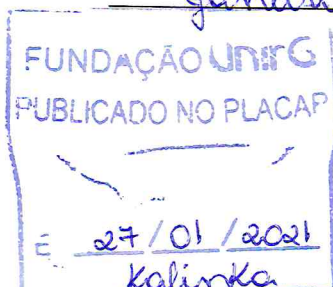 FUNDAÇÃO UnirG
PUBLICADO NO PLACAR
E 27/01/2021
Kalinka